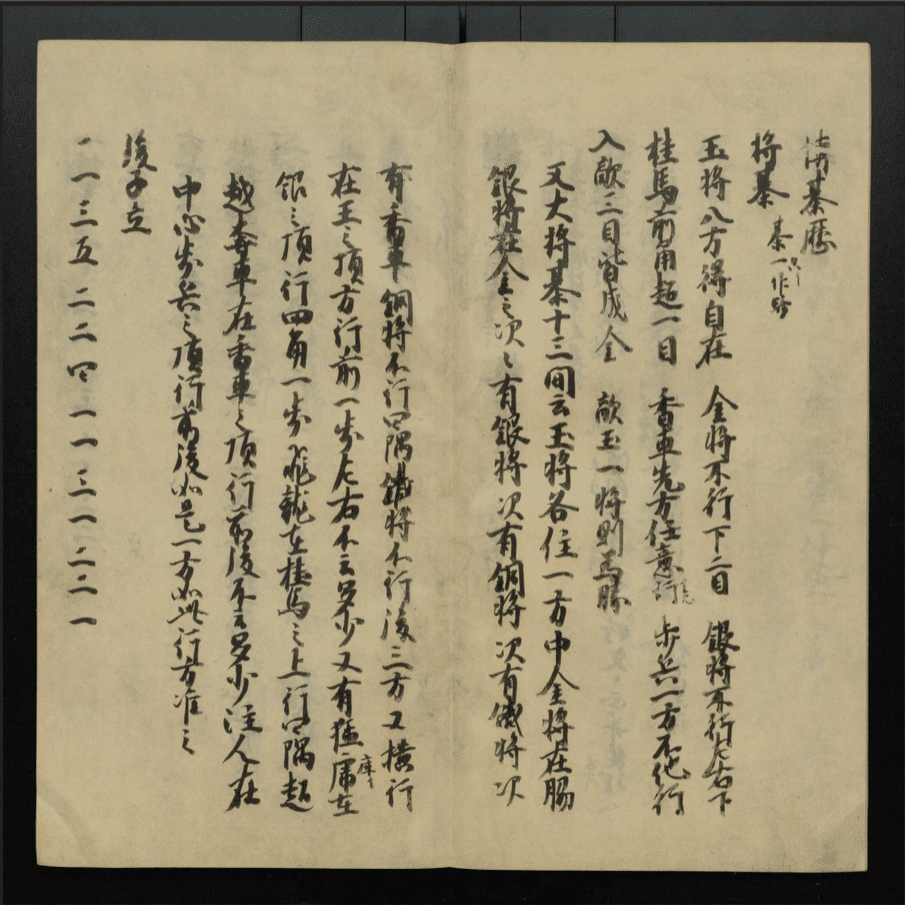 将棊
玉将八方得自在 金将不行下二目 銀将不行左右下
桂馬前角超一目 香車先方任意行 歩兵一方不他行
入敵三目皆成金 敵玉一将則為勝
又大将棊十三間云玉将各住一方中金将在脇
銀将在金之次々有銀将次有銅将次有鉄将次
有香車 銅将不行四隅鉄将不行後三方又横行
在王之頂方行前一歩左右不云多少又有猛虎在
銀之頂行四角一歩飛龍在桂馬之上行四隅超
越奔車在香車之頂行前後不云多少注人在
中心歩兵之頂行前後如是一方如此行方准之
後子立
一一三五二二四一一三一二二一